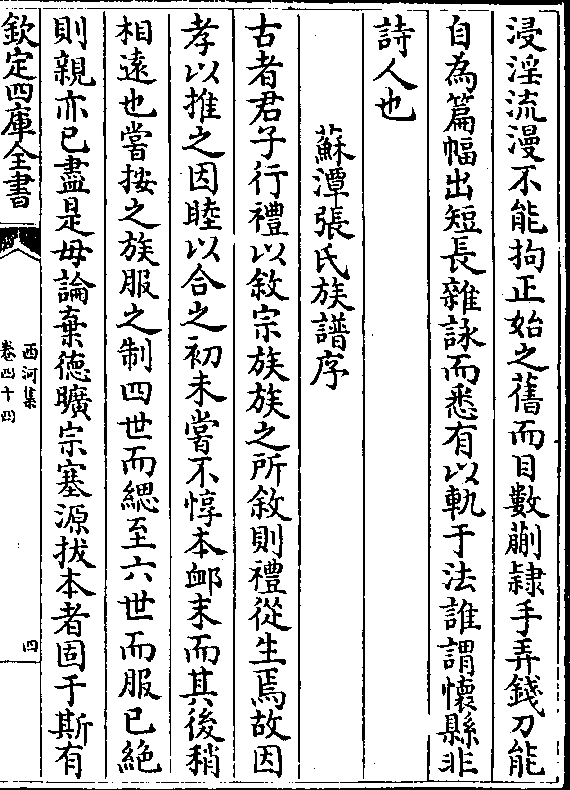 浸淫流漫不能拘正始之舊而目數蒯隷手弄錢刀能
自為篇幅出短長雜詠而悉有以軌于法誰謂懷縣非
詩人也
蘇潭張氏族譜序
古者君子行禮以敘宗族族之所敘則禮從生焉故因
孝以推之因睦以合之初未嘗不惇本衈末而其後稍
相遠也嘗按之族服之制四世而緦至六世而服已絶
則親亦已盡是毋論棄德曠宗塞源拔本者固于斯有
欽定四庫全書
西河集
卷四十四
四